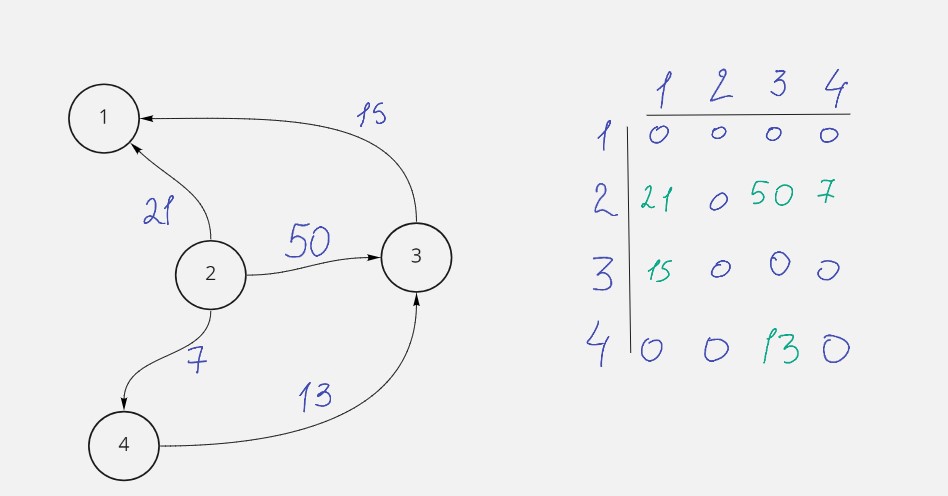 1
15
21
2
50
3
7
13
4
1 2 3 4
1 0 0 0 0
2 21 0 50 7
3 15 0 0 0
4 0 0 13 0